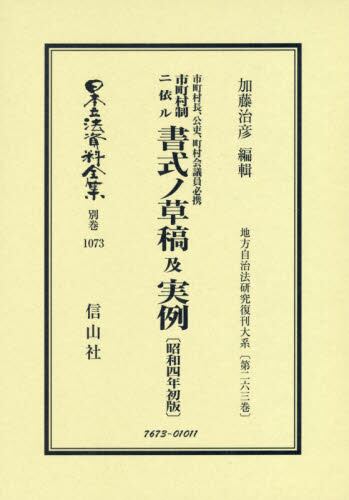 加藤治彦 編輯
地方自治法研究復刊大系〔第二六三巻〕
市町村長、公吏、町村会議員必携
市町村制
ニ依ル
書式ノ草稿及実例
〔昭和四年初版〕
日本立法資料全集
別巻
1073
信山社
7673-01011